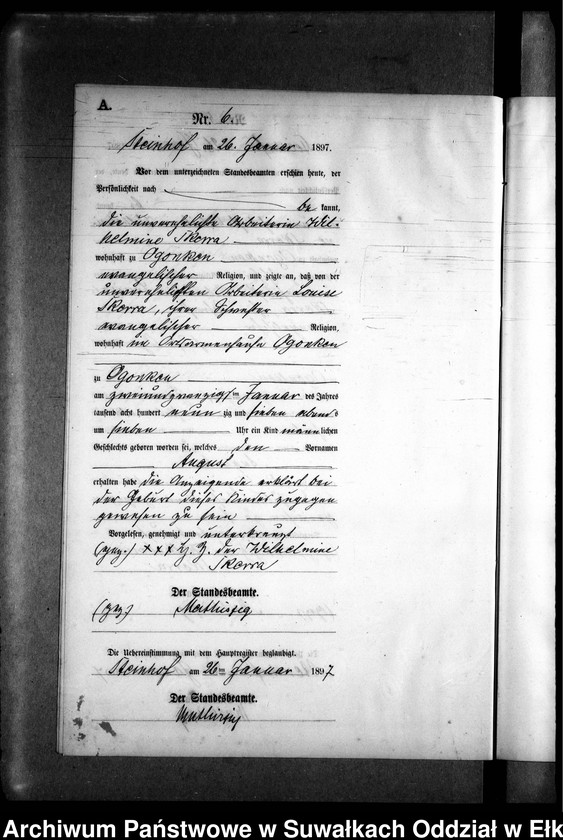 A.
Nr. 6.
Steinhof am 26. Januar 1897.
Vor dem unterzeichneten Standesbeamten erschien heute, der
Persönlichkeit nach
be kannt,
die unverehelichte Arbeiterin Wil-
helmine Skorra
wohnhaft zu Ogonken
evangelischer Religion, und zeigte an, daß von der
unverehelichten Arbeiterin Louise
Skorra, ihrer Schwester
evangelischer Religion,
wohnhaft im Ortsarmenhause Ogonken
zu Ogonken
am zweiundzwanzigsten Januar des Jahres
tausend acht hundert neunzig und sieben abends
um sieben Uhr ein Kind männlichen
Geschlechts geboren worden sei, welches den Vornamen
August
erhalten habe die Anzeigende erklärt bei
der Geburt dieses Kindes zugegen
gewesen zu sein
Vorgelesen, genehmigt und unterkreuzt
(gez.) xxx H. Z. der Wilhelmine
Skorra
Der Standesbeamte.
(gez)
Die Uebereinstimmung mit dem Hauptregister beglaubigt.
Steinhof am 26ten Januar 1897
Der Standesbeamte.
Archiwum Państwowe w Suwałkach Oddział w Ełk